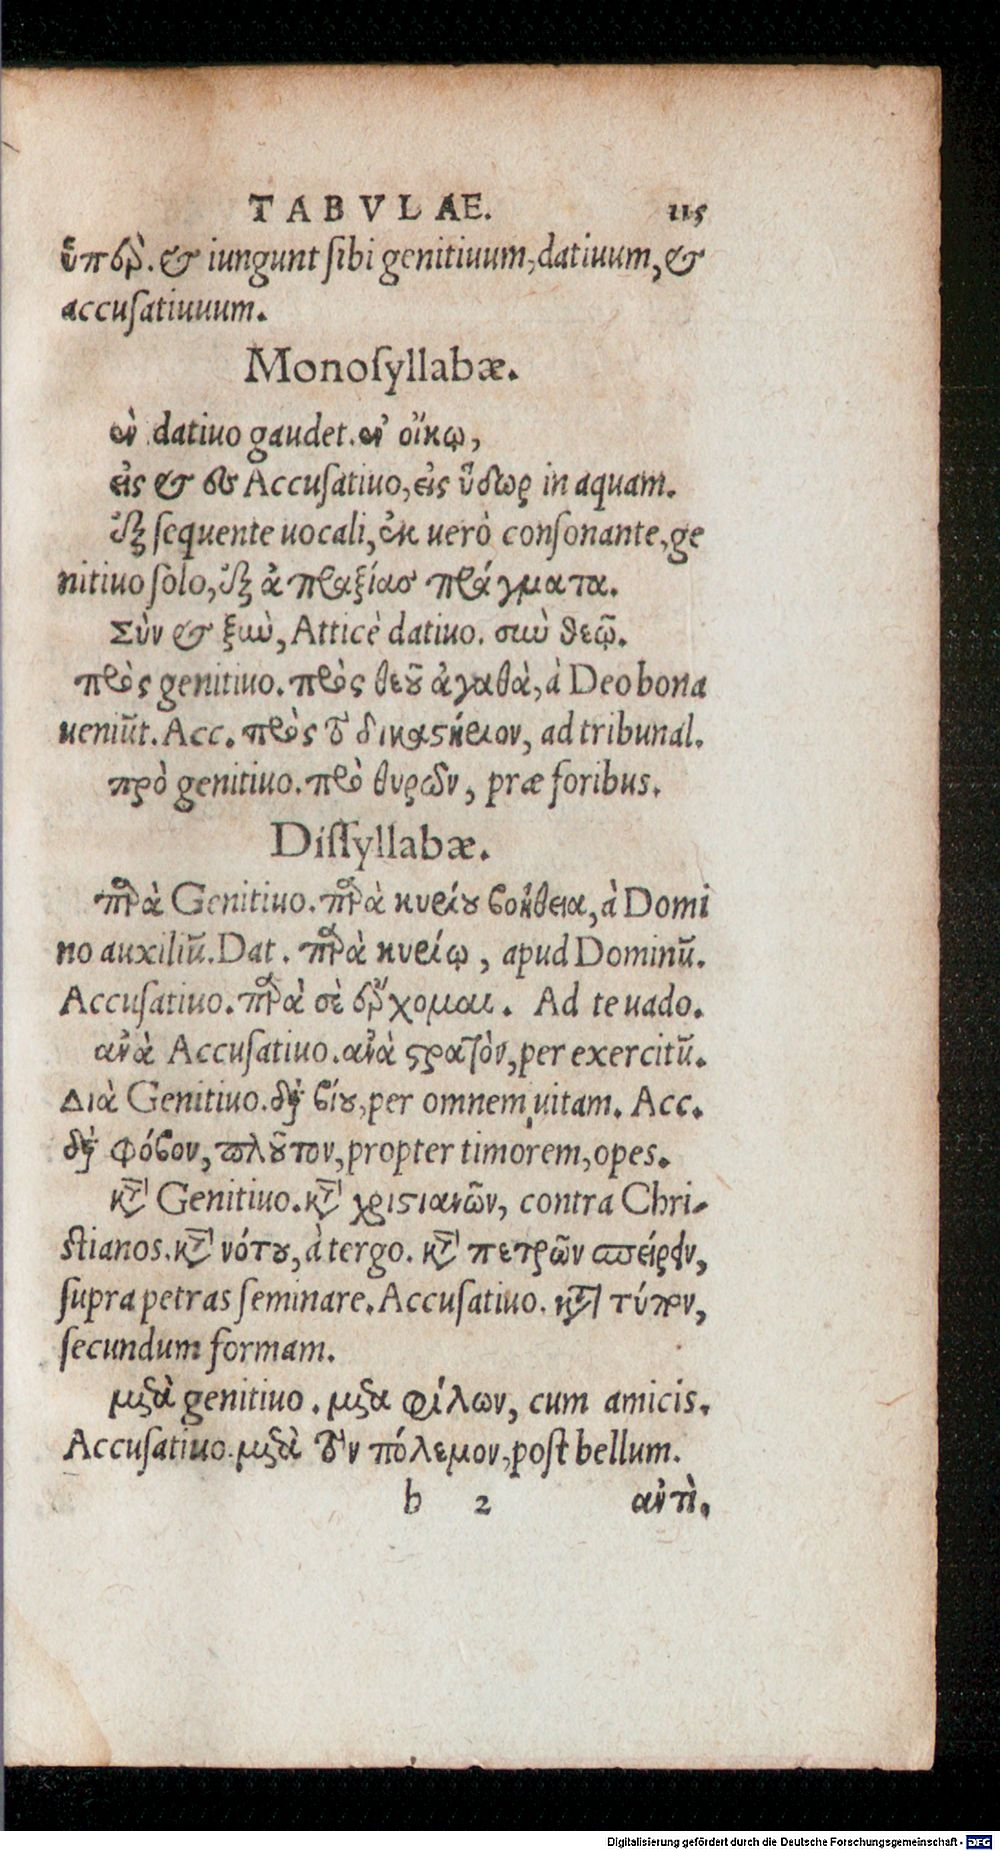 TABVLAE. 115
ὑπὲρ. & iungunt sibi genitiuum, datiuum, &
accusatiuuum.
Monosyllabæ.
ἐν datiuo gaudet. ἐν οἴκῳ,
εἰς & ἐς Accusatiuo, εἰς ὕδωρ in aquam.
ἐξ sequente uocali, ἐκ uerò consonante, ge
nitiuo solo, ἐξ ἀπραξίας πράγματα.
Σὺν & ξὺν, Atticè datiuo. σὺν θεῷ.
πρὸς genitiuo. πρὸς θεοῦ ἀγαθὰ, à Deo bona
ueniūt. Acc. πρὸς τὸ δικαστήριον, ad tribunal.
πρὸ genitiuo. πρὸ θυρῶν, præ foribus.
Dissyllabæ.
παρὰ Genitiuo. παρὰ κυρίου βοήθεια, à Domi
no auxiliū. Dat. παρὰ κυρίῳ, apud Dominū.
Accusatiuo. παρὰ σὲ ἔρχομαι. Ad te uado.
ἀνὰ Accusatiuo. ἀνὰ στρατὸν, per exercitū.
Διὰ Genitiuo. διὰ βίου, per omnem uitam. Acc.
διὰ φόβον, πλοῦτον, propter timorem, opes.
κατὰ Genitiuo. κατὰ χριστιανῶν, contra Chri-
stianos. κατὰ νότου, à tergo. κατὰ πετρῶν σπείρειν,
supra petras seminare. Accusatiuo. κατὰ τύπον,
secundum formam.
μετὰ genitiuo. μετα φίλων, cum amicis.
Accusatiuo. μετὰ τὸν πόλεμον, post bellum.
b 2 ἀντὶ.
Digitalisierung gefördert durch die Deutsche Forschungsgemeinschaft - DFG